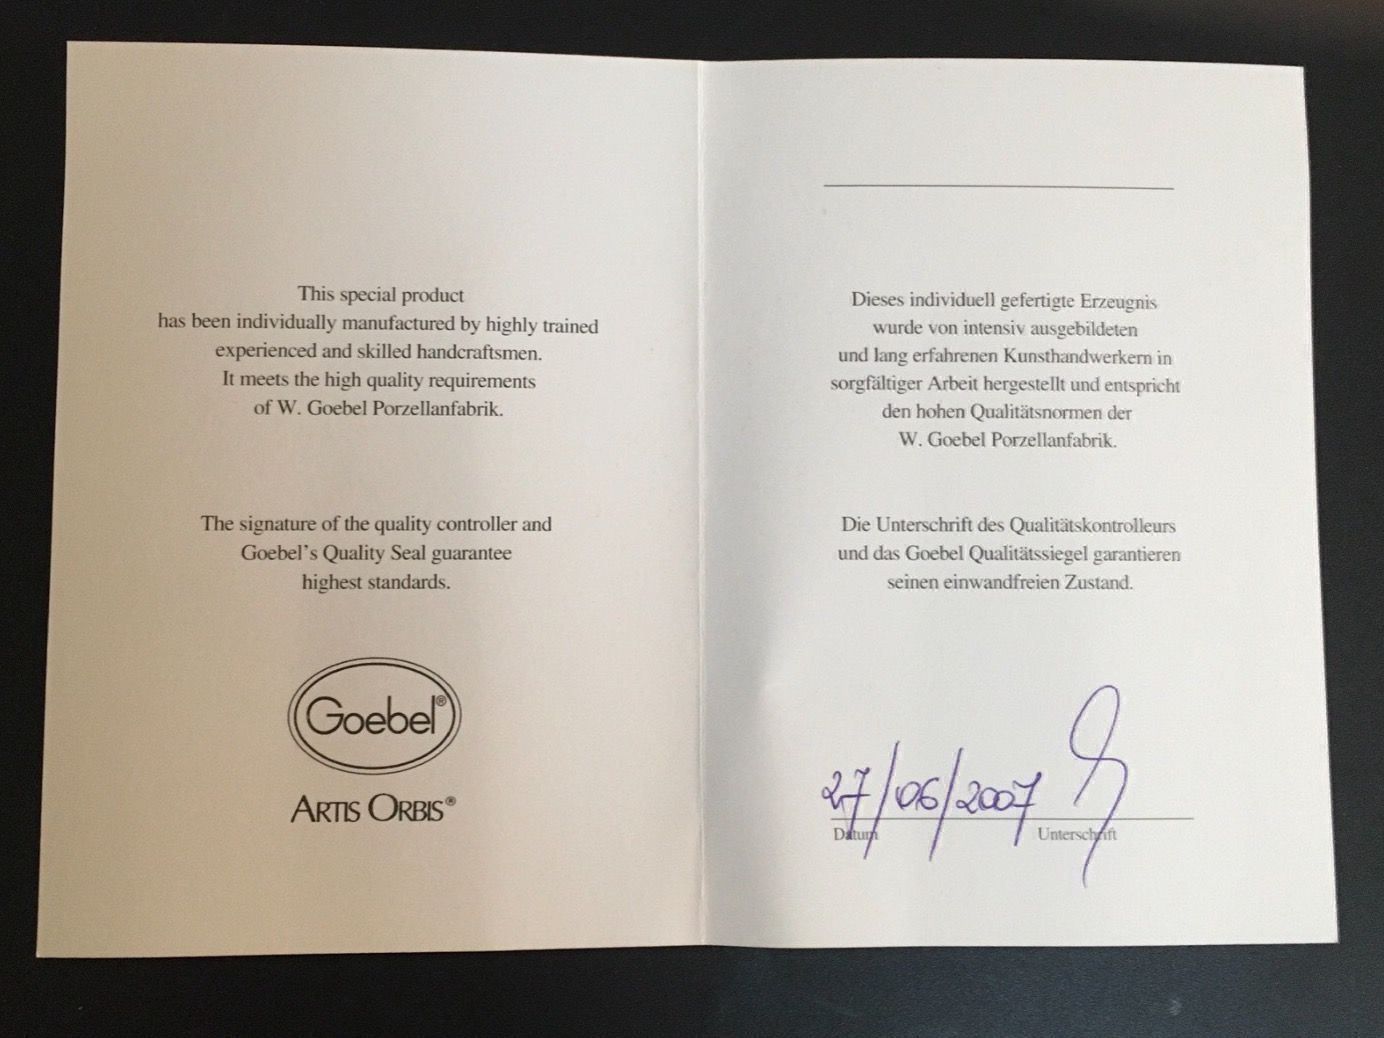 This special product
has been individually manufactured by highly trained
experienced and skilled handcraftsmen.
It meets the high quality requirements
of W. Goebel Porzellanfabrik.
The signature of the quality controller and
Goebel's Quality Seal guarantee
highest standards.
Goebel®
ARTIS ORBIS®
Dieses individuell gefertigte Erzeugnis
wurde von intensiv ausgebildeten
und lang erfahrenen Kunsthandwerkern in
sorgfältiger Arbeit hergestellt und entspricht
den hohen Qualitätsnormen der
W. Goebel Porzellanfabrik.
Die Unterschrift des Qualitätskontrolleurs
und das Goebel Qualitätssiegel garantieren
seinen einwandfreien Zustand.
27/06/2007
Datum Unterschrift